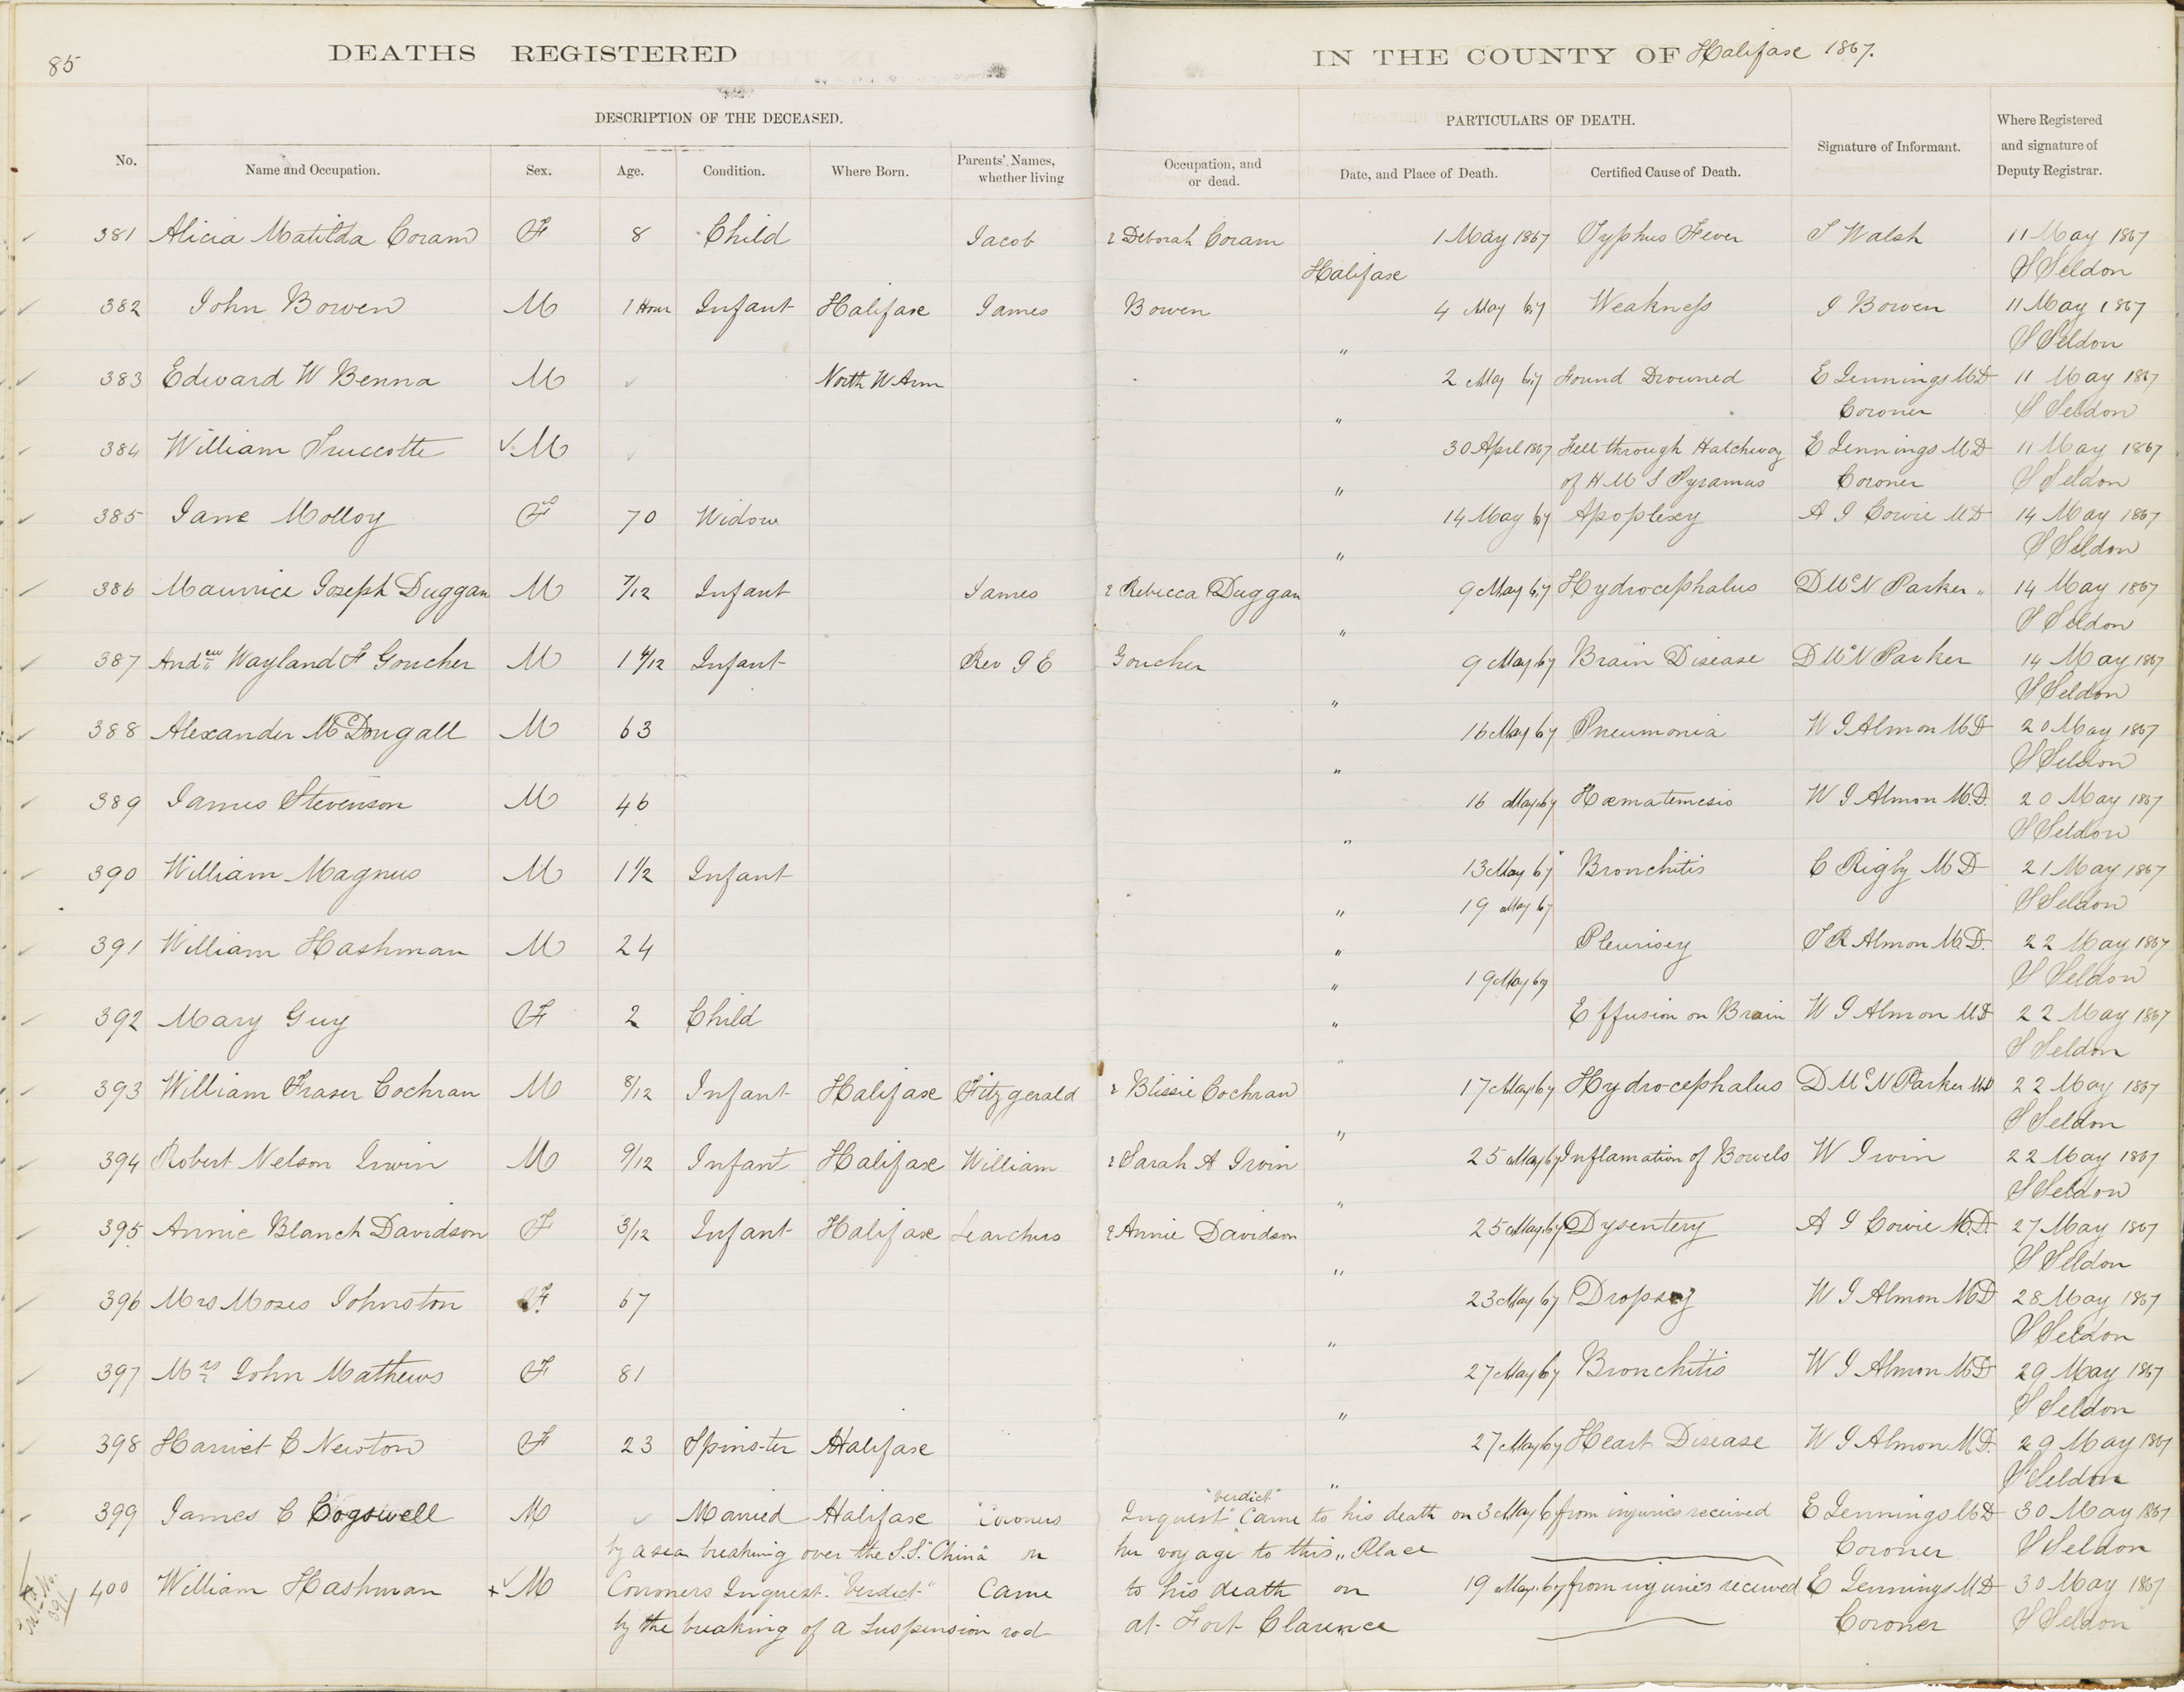 85
DEATHS REGISTERED IN THE COUNTY OF Halifax 1867.
DESCRIPTION OF THE DECEASED. PARTICULARS OF DEATH.
No. Name and Occupation. Sex. Age. Condition. Where Born. Parents' Names, whether living Occupation, and or dead. Date, and Place of Death. Certified Cause of Death. Signature of Informant. Where Registered and signature of Deputy Registrar.
381 Alicia Matilda Coram F 8 Child Jacob & Deborah Coram 1 May 1867 Typhus Fever T Walsh 11 May 1867
Halifax S Seldon
382 John Bowen M 1 Hour Infant Halifax James Bowen 4 May 67 Weakness J Bowen 11 May 1867
" S Seldon
383 Edward W Benna M North W Arm 2 May 67 Found Drowned E Jennings MD 11 May 1867
" Coroner S Seldon
384 William Truccotte M 30 April 1867 Fell through Hatchway E Jennings MD 11 May 1867
" of H M S Pyramus Coroner S Seldon
385 Jane Molloy F 70 Widow 14 May 67 Apoplexy A J Cowie MD 14 May 1867
" S Seldon
386 Maurice Joseph Duggan M 7/12 Infant James & Rebecca Duggan 9 May 67 Hydrocephalus D McN Parker " 14 May 1867
" S Seldon
387 Andew Wayland F Goucher M 1 4/12 Infant Rev G E Goucher 9 May 67 Brain Disease D McN Parker 14 May 1867
" S Seldon
388 Alexander McDougall M 63 16 May 67 Pneumonia W J Almon MD 20 May 1867
" S Seldon
389 James Stevenson M 46 16 May 67 Hæmatemesis W J Almon M.D. 20 May 1867
" S Seldon
390 William Magnus M 1 1/2 Infant 13 May 67 Bronchitis C Rigby MD 21 May 1867
" 19 May 67 S Seldon
391 William Hashman M 24 " Pleurisey T R Almon M.D. 22 May 1867
" 19 May 67 S Seldon
392 Mary Guy F 2 Child " Effusion on Brain W J Almon MD 22 May 1867
" S Seldon
393 William Fraser Cochran M 8/12 Infant Halifax Fitzgerald & Blissie Cochran 17 May 67 Hydrocephalus D McN Parker MD 22 May 1867
" S Seldon
394 Robert Nelson Irwin M 9/12 Infant Halifax William & Sarah A Irvin 25 May 67 Inflamation of Bowels W Irvin 22 May 1867
" S Seldon
395 Annie Blanch Davidson F 3/12 Infant Halifax & Annie Davidson 25 May 67 Dysentery A J Cowie M.D. 27 May 1867
" S Seldon
396 Mrs Moses Johnston F 67 23 May 67 Dropsey W J Almon MD 28 May 1867
" S Seldon
397 Mrs John Mathews F 81 27 May 67 Bronchitis W J Almon MD 29 May 1867
" S Seldon
398 Harriet C Newton F 23 Spinster Halifax 27 May 67 Heart Disease W J Almon M.D. 29 May 1867
" S Seldon
399 James C Cogswell M Married Halifax "Coroners Inquest" "Verdict" Came to his death on 3 May 67 from injuries received E Jennings MD 30 May 1867
by a sea breaking over the S.S. "China" on her voyage to this " Place Coroner S Seldon
400 William Hashman M Corroners Inquest. "Verdict" Came to his death on 19 May 67 from injuries received E Jennings MD 30 May 1867
by the breaking of a Suspension rod at Fort Clarence Coroner S Seldon